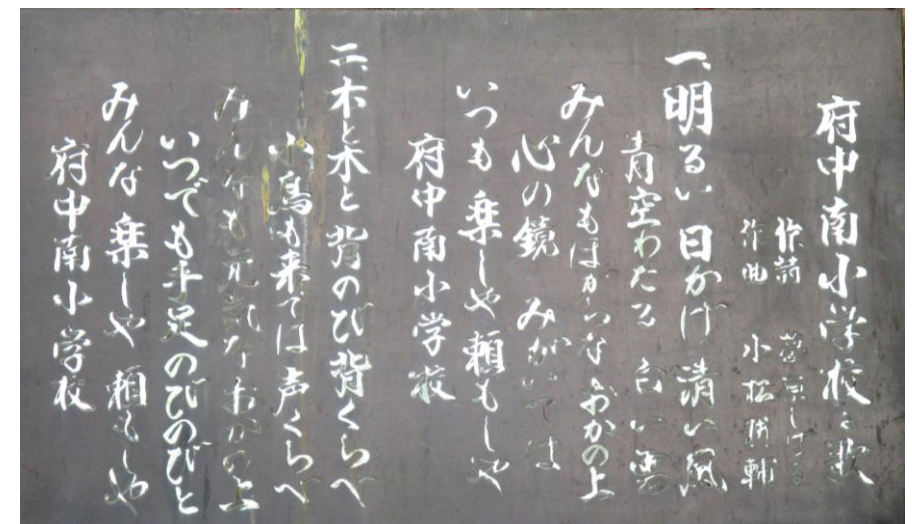 府中南小学校々歌
作詩 葛原しげる
作曲 小松耕輔
一、明るい 日かげ 清い風
青空わたる 白い雲
みんなもほがらかな おかの上
心の鏡 みがいては
いつも 楽しや 頼もしや
府中南小学校
二、木と木と 背のび 背くらべ
小鳥も来ては 声くらべ
みんなも元気な おかの上
いつでも手足 のびのびと
みんな 楽しや 頼もしや
府中南小学校